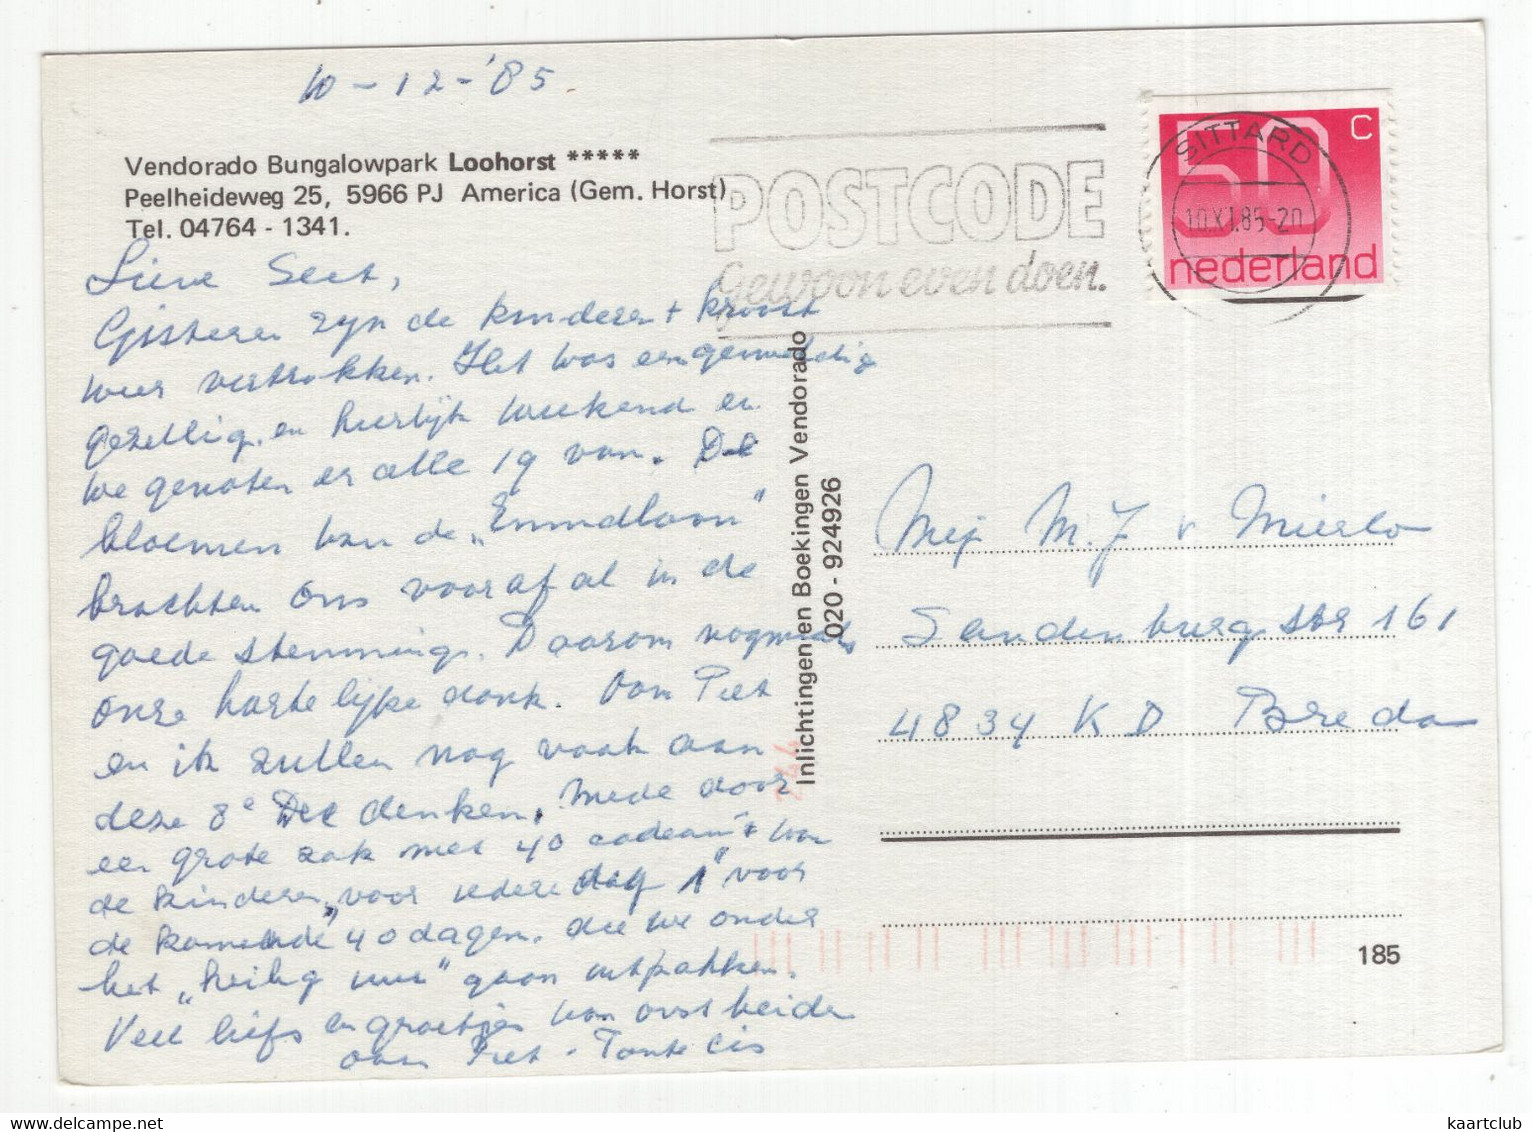 10-12-'85
Vendorado Bungalowpark Loohorst *****
Peelheideweg 25, 5966 PJ America (Gem. Horst)
Tel. 04764 - 1341.
Lieve
Gisteren zijn de kinderen + kroost
weer vertrokken. Het was een geweldig
gezellig, en heerlijk weekend en
we genoten er alle 19 van. De
bloemen van de
brachten ons vooraf al in de
goede stemming. Daarom nogmaals
onze hartelijke dank. Oom Piet
en ik zullen nog vaak aan
deze 8e Dec denken. Mede door
een grote zak met 40 cadeau's van
de kinderen, voor iedere dag 1" voor
de komende 40 dagen. die we onder
het „heilig uur" gaan uitpakken.
Veel liefs en groetjes van ons beiden
oom Piet - Tante Cis
Inlichtingen en Boekingen Vendorado
020 - 924926
POSTCODE
Gewoon even doen.
SITTARD
10.XI.85-20
50 C
nederland
Mej M.J v Mierlo
Sandenburgstr 161
4834 KD Breda
185
kaartclub